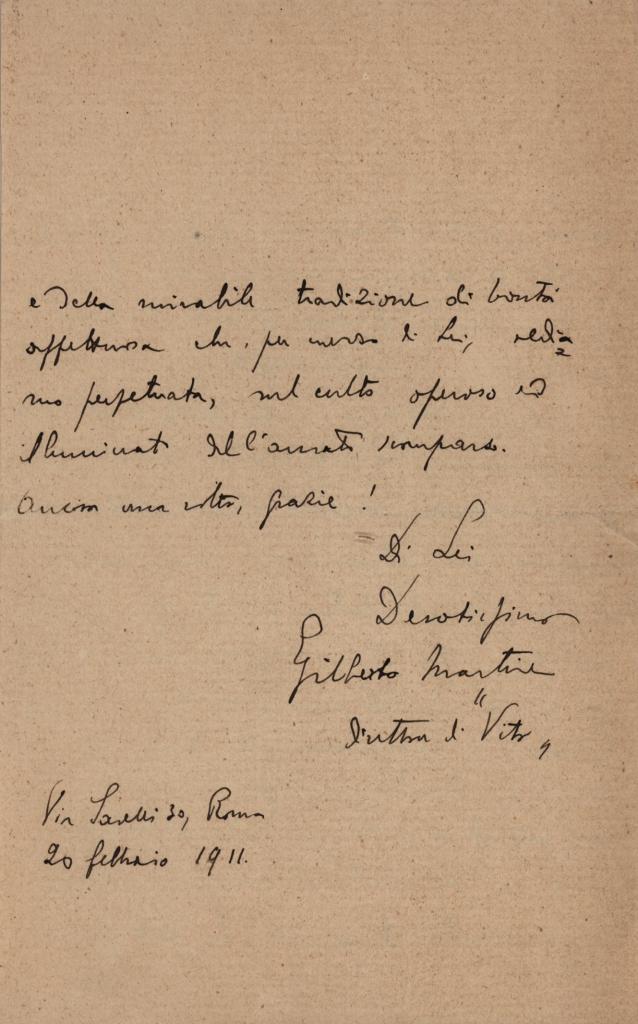 e della mirabile tradizione di bontà
affettuosa che, per mezzo di Lei, vedia=
mo perpetuata, nel culto operoso ed
illuminato dell'amato scomparso.
Ancora una volta, grazie!
Di Lei
Devotissimo
Gilberto Martire
direttore di "Vita„
Via Savelli 30, Roma
20 febbraio 1911.